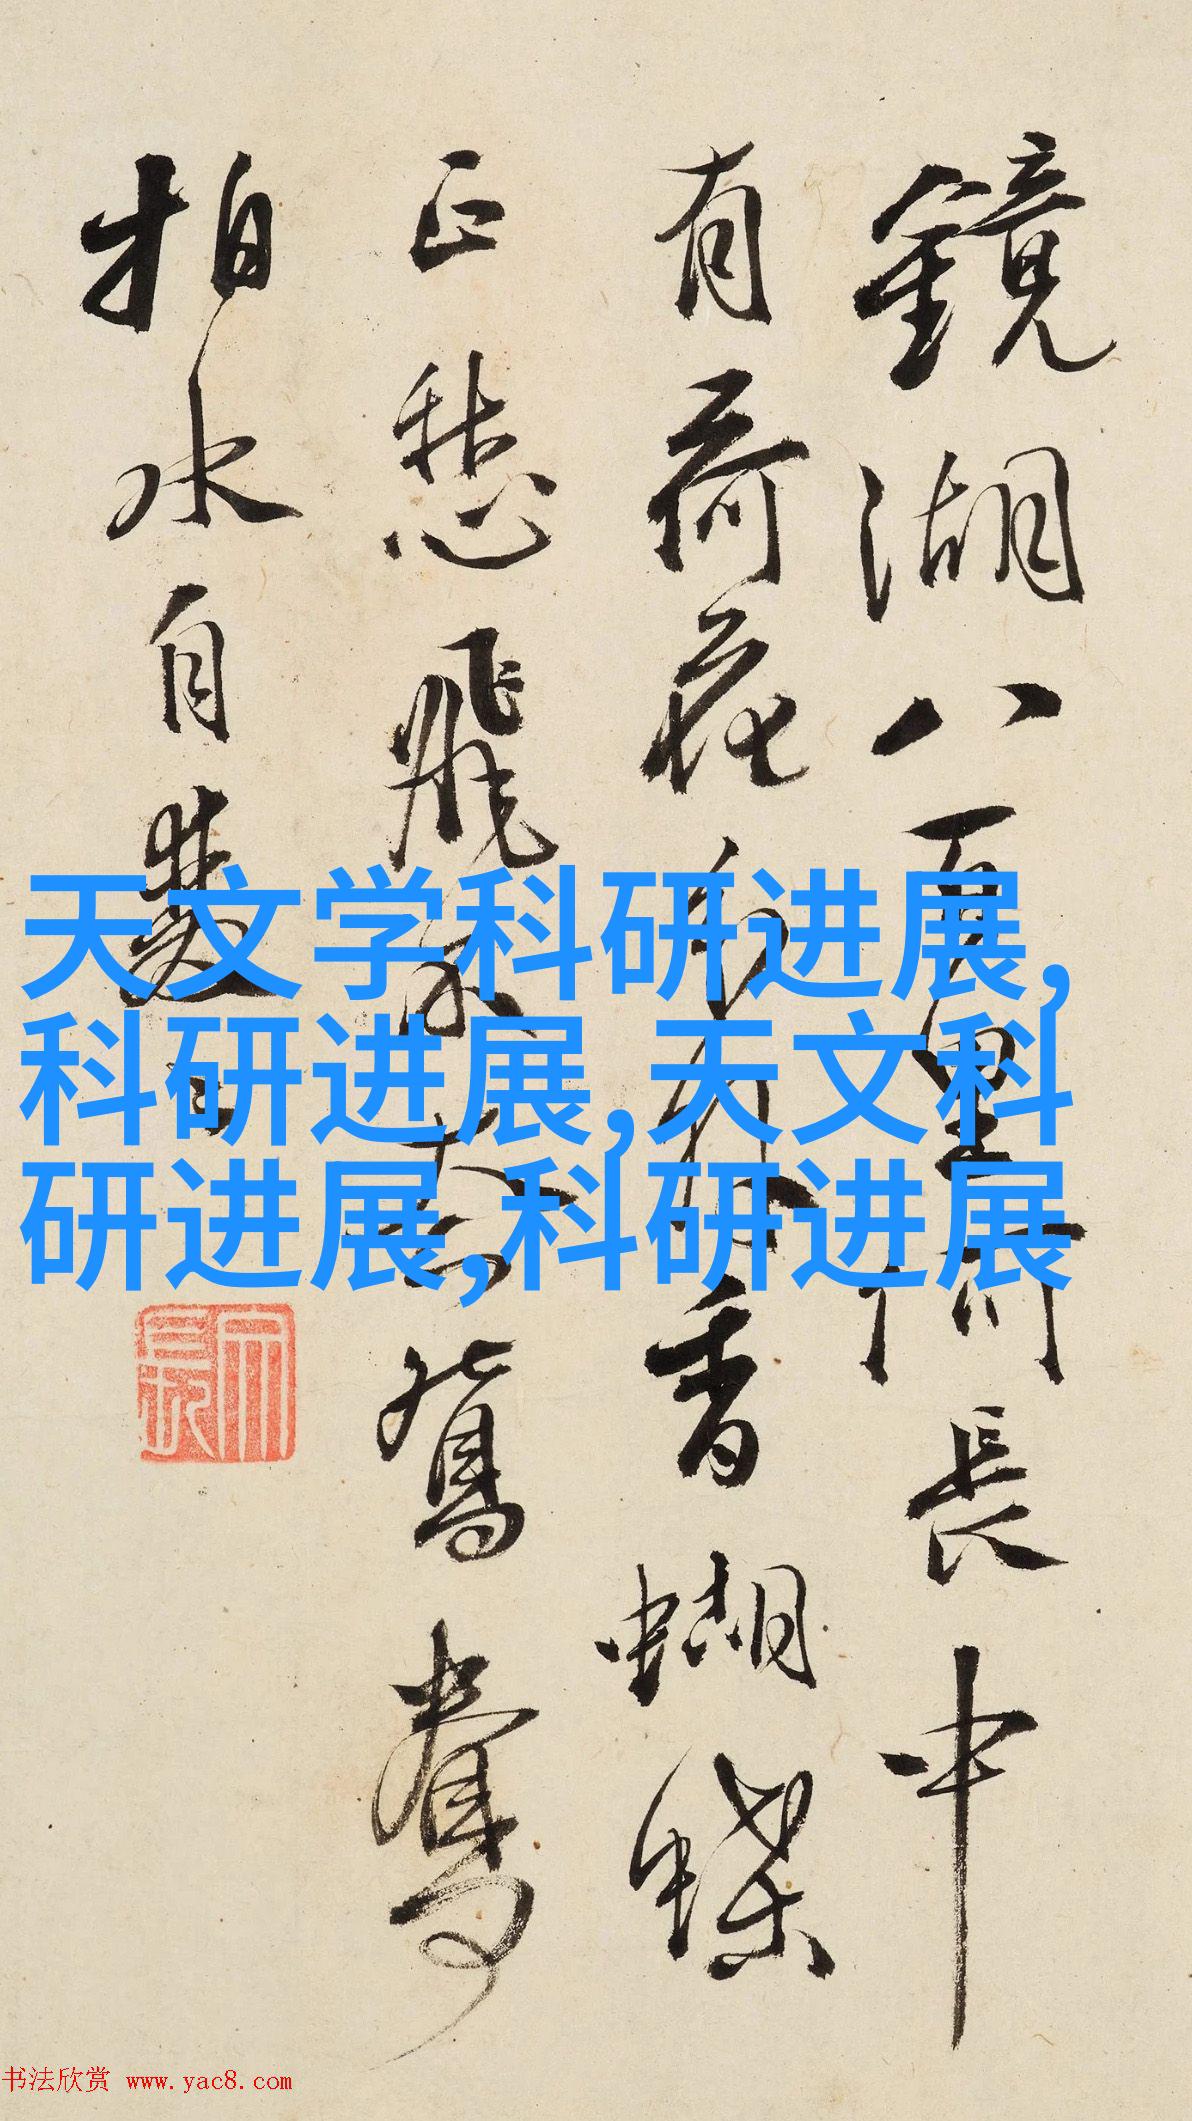 鏡湖八百里何長中
有荷花分外香蝴蝶
正愁飛不鴛鴦
拍水自雙
天文学科研进展,
科研进展,天文科
研进展,科研进展
书法欣赏 www.yac8.com